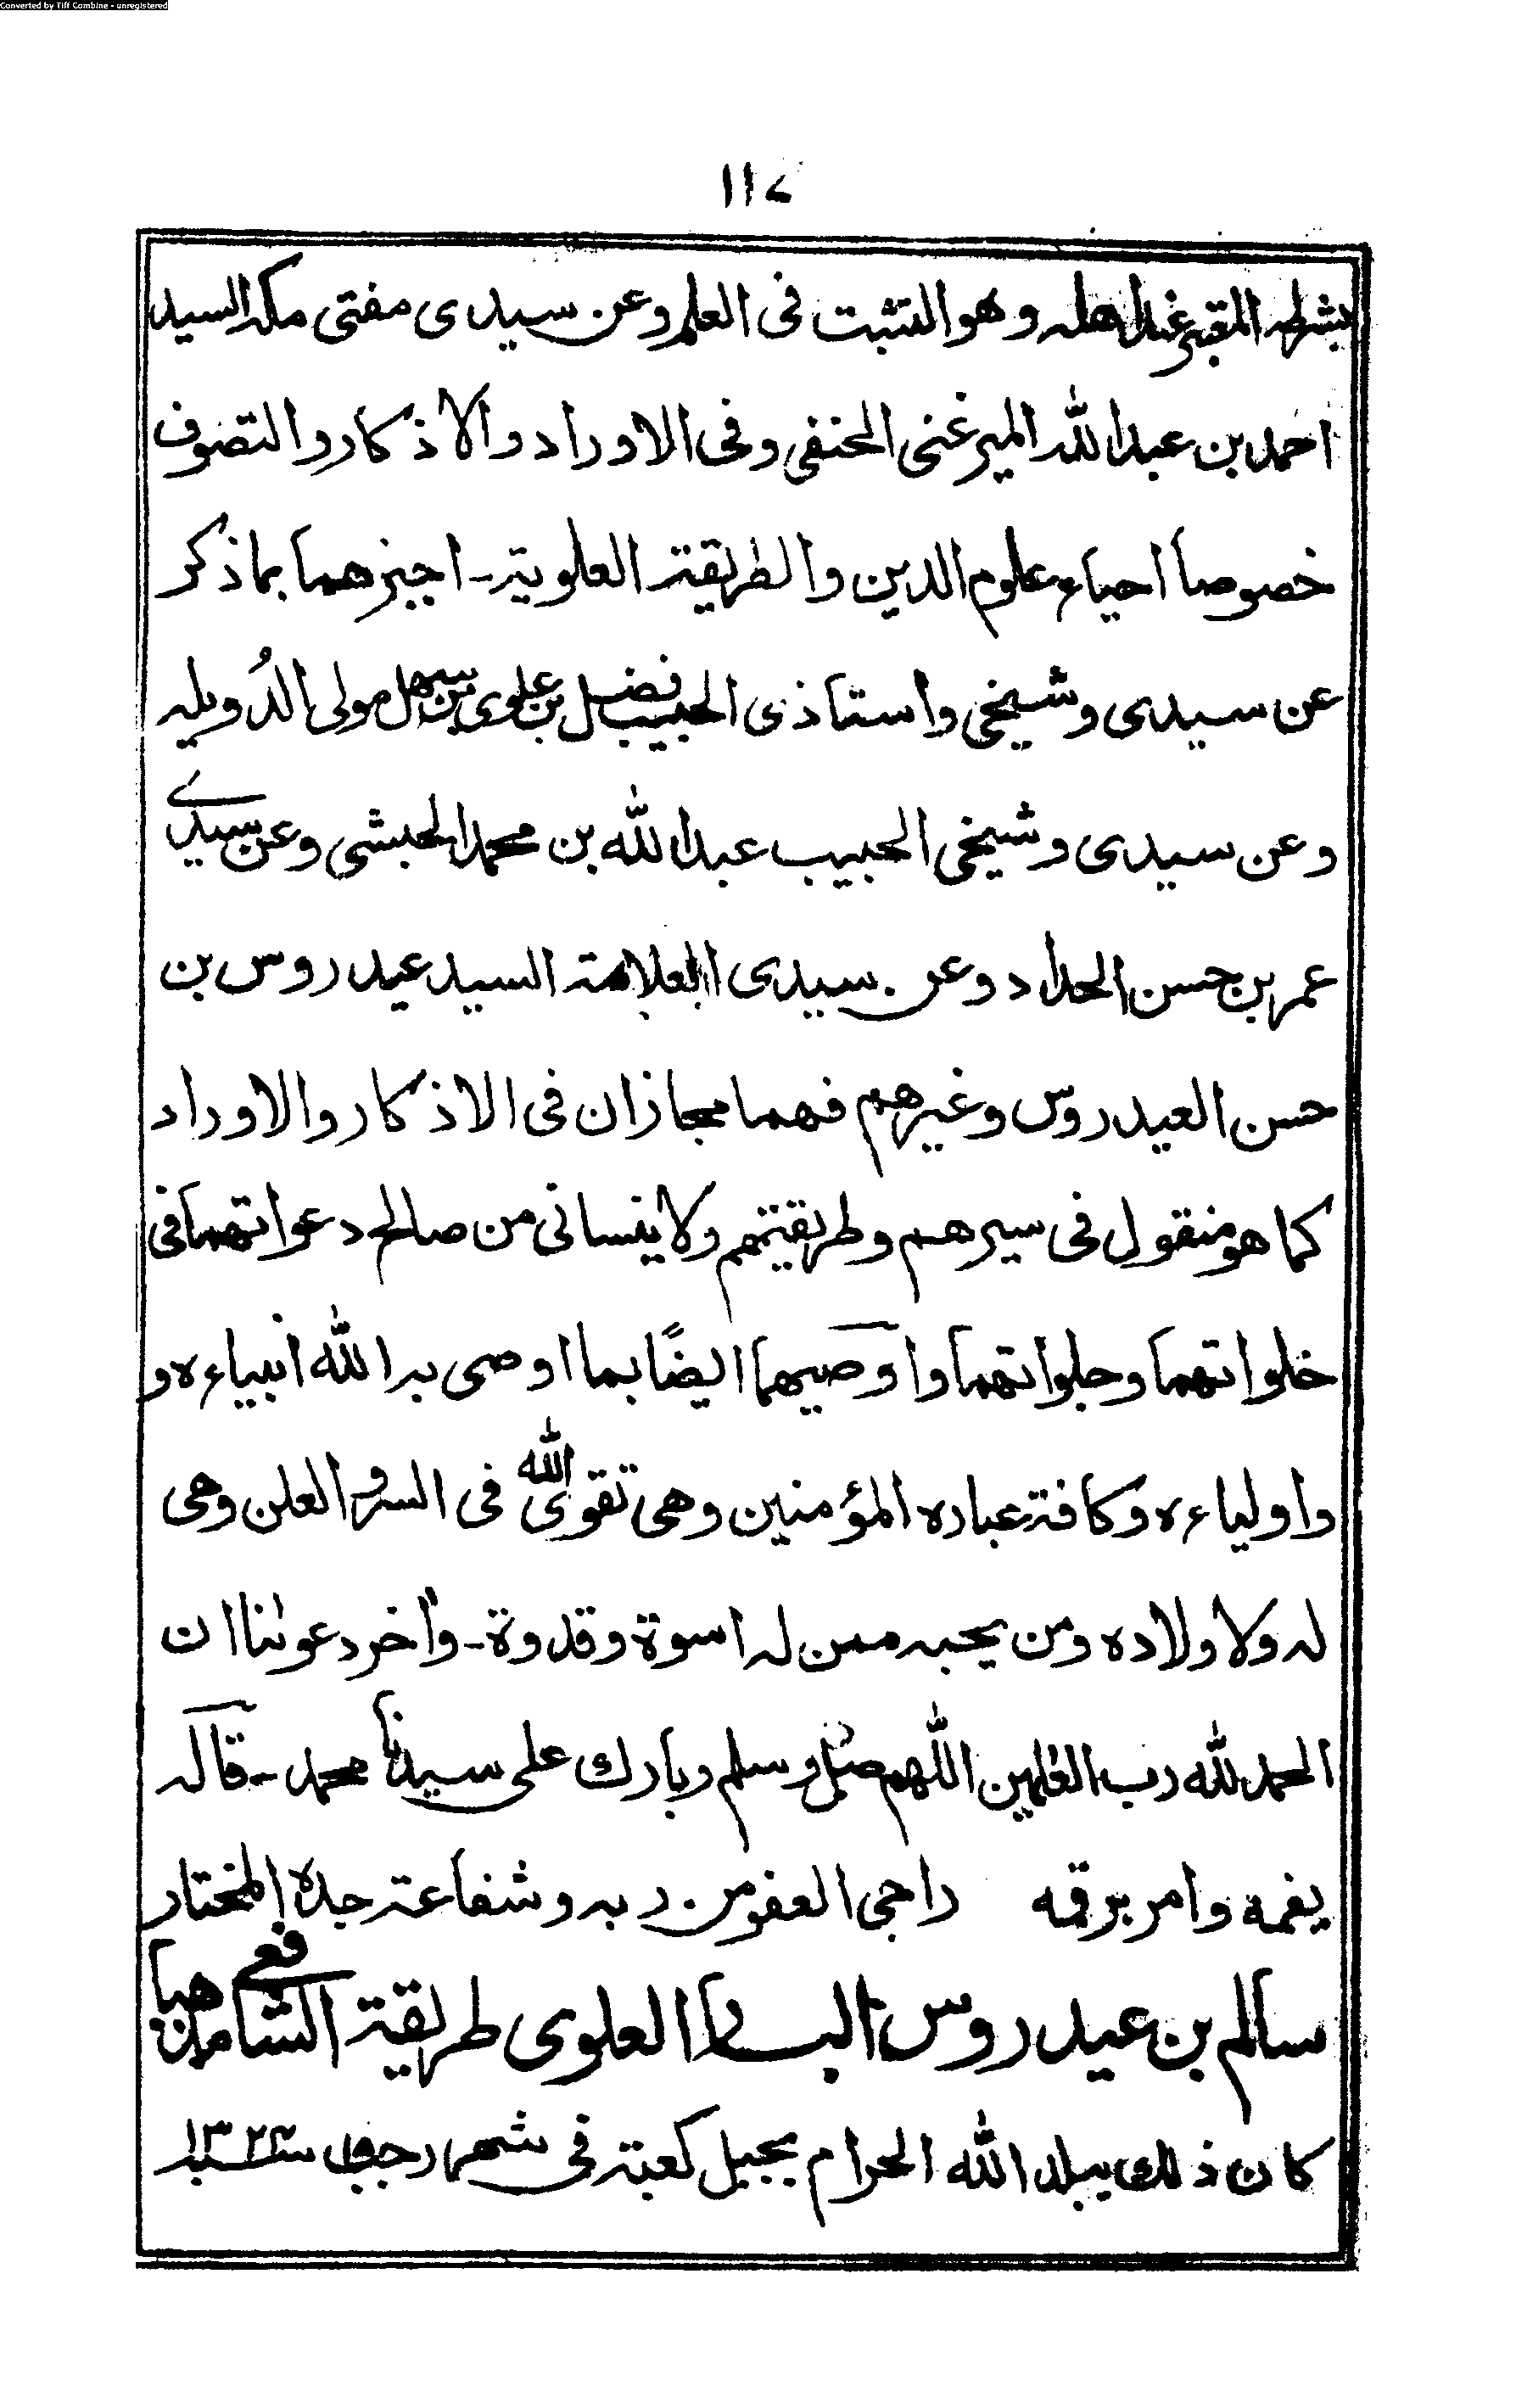 Converted by Tiff Combine - unregistered
١١٧
بشرطه المقبر عند اهله وهو التثبت فى العلم وعن سيدى مفتى مكه السيد
احمد بن عبد الله المير غنى الحنفى وفى الاوراد والاذكار والتصوف
خصوصا احياء علوم الدين والطريقة العلوية - اجيزهما بما ذكر
عن سيدى وشيخى واستاذى الحبيب فضل بن علوى بن سهل مولى الدُويله
وعن سيدى وشيخى الحبيب عبد الله بن محمد الحبشى وعن سيدے
عمر بن حسن الحداد وعن سيدى العلامة السيد عيدروس بن
حسن العيدروس وغيرهم فهما مجازان فى الاذكار والاوراد
كما هو منقول فى سيرهم وطريقتهم ولا ينسانى من صالح دعواتهما فى
خلواتهما وجلواتهما واوصيهما ايضًا بما اوصى به الله انبياءه و
واولياءه وكافة عباده المؤمنين وهى تقوى الله فى السر والعلن وهى
له ولاولاده ومن يحبه ممن له اسوة وقدوة - وآخر دعوٰنا ان
الحمد لله رب العٰلمين اللٰهم صل وسلم وبارك على سيدنا محمد - قاله
بفمه وامر برقمه راجى العفو من ربه وشفاعة جده المختار
سالم بن عيدروس البار العلوى طريقة الشافعے مذهبا
كان ذلك ببلد الله الحرام بجبل كعبة فى شهر رجب سنة ١٣٢٤